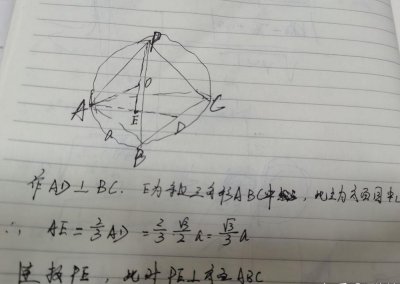 P
O
A
C
E
D
a
B
作AD⊥BC. E为等边三角形ABC中心, 此点为底面圆
∴ AE=2/3AD=2/3 √3/2 a=√3/3 a
连接PE, 此时PE⊥底面ABC